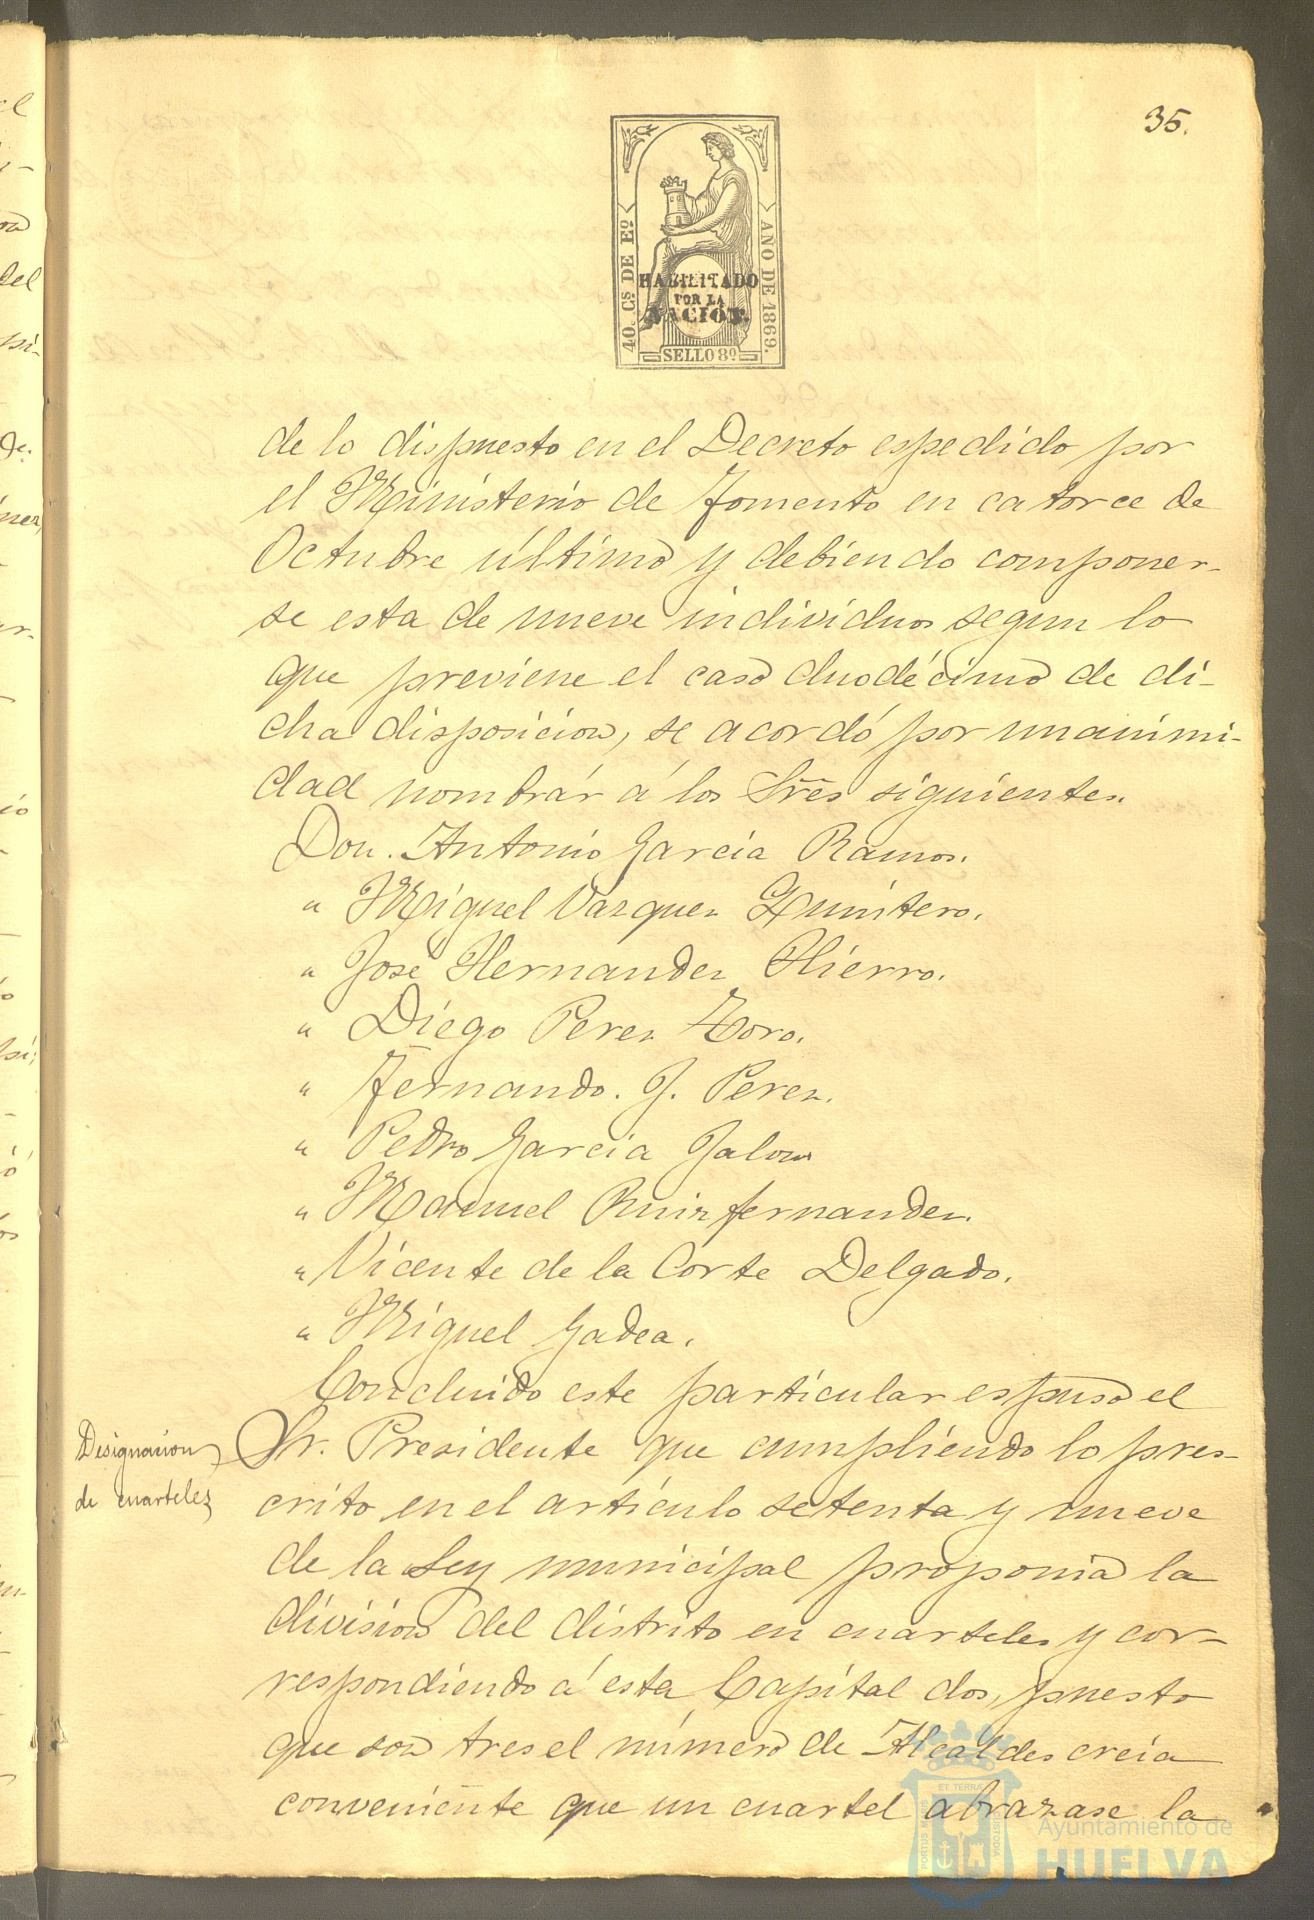 35.
40. Cs DE Eº
AÑO DE 1869.
HABILITADO
POR LA
NACION.
SELLO 8º
de lo dispuesto en el Decreto espedido por
el Ministerio de Fomento en catorce de
Octubre último y debiendo componer-
se esta de nueve individuos segun lo
que previene el caso duodécimo de di-
cha disposicion, se acordó por unanimi-
dad nombrár á los Sres siguientes.
Don. Antonio Garcia Ramos.
" Miguel Vazquez Quintero.
" José Hernandez Hierro.
" Diego Perez Toro.
" Fernando. J. Perez.
" Pedro Garcia Jalon
" Manuel Ruiz fernandez.
" Vicente de la Corte Delgado.
" Miguel Gadea.
Concluido este particular espuso el
Designacion
de cuarteles
Sr. Presidente que cumpliendo lo pres-
crito en el articulo setenta y nueve
de la Ley municipal proponia la
division del distrito en cuarteles y cor-
respondiendo á esta Capital dos, puesto
que son tres el número de Alcaldes creia
conveniente que un cuartel abrazase la
PORTUS MARIS
ET TERRAE
CUSTODIA
Ayuntamiento de
HUELVA